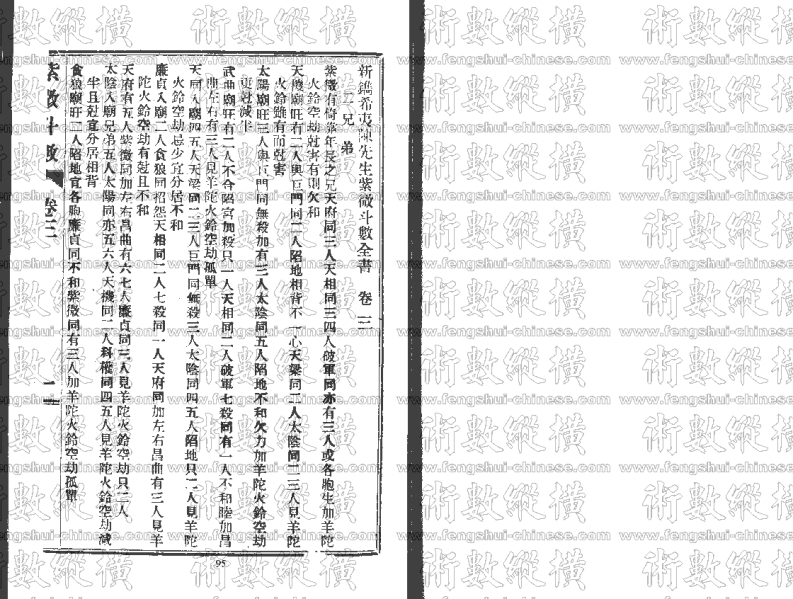 新鐫希夷陳先生紫微斗數全書　卷三
二兄弟
紫微有倚靠年長之兄天府同三人天相同三四人破軍同亦有三人或各胞生加羊陀
火鈴空劫尅害有則欠和
天機廟旺有二人與巨門同二人陷地相背不一心天梁同二人太陰同二三人見羊陀
火鈴雖有而尅害
太陽廟旺三人與巨門同無殺加有三人太陰同五人陷地不和欠力加羊陀火鈴空劫
更尅減半
武曲廟旺有二人不合陷宮加殺只一人天相同二人破軍七殺同有一人不和睦加昌
曲左右有三人見羊陀火鈴空劫孤單
天同入廟四五人天梁同二三人巨門同無殺三人太陰同四五人陷地只二人見羊陀
火鈴空劫少宜分居不和
廉貞入廟二人貪狼同招怨天相同二人七殺同一人天府同加左右昌曲有三人見羊
陀火鈴空劫有尅且不和
天府有五人紫微同加左右昌曲有六七人廉貞同三人見羊陀火鈴空劫只二人
太陰入廟兄弟五人太陽同亦五六人天機同二人科權同四五人見羊陀火鈴空劫減
半且尅宜分居相背
貪狼廟旺二人陷地宜各胞廉貞同不和紫微同有三人加羊陀火鈴空劫孤單
紫微斗數　卷三
95
術數縱橫
www.fengshui-chinese.com